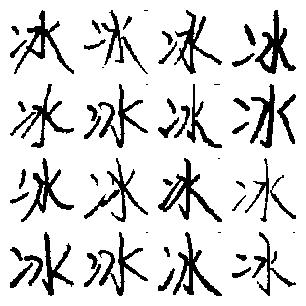 冰冰冰冰
冰冰冰冰
冰冰冰冰
冰冰冰冰